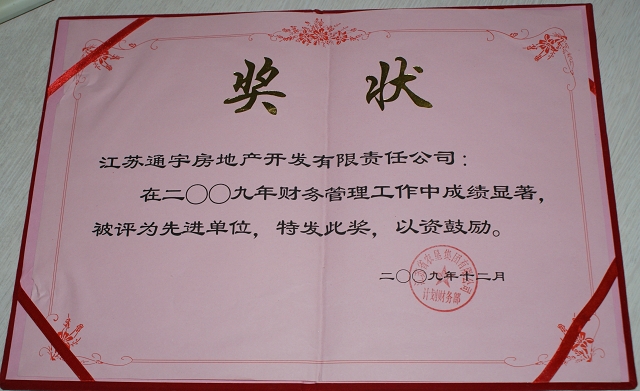 奖 状
江苏通宇房地产开发有限责任公司：
在二〇〇九年财务管理工作中成绩显著，
被评为先进单位，特发此奖，以资鼓励。
二〇〇九年十二月
省农垦集团有限公司
计划财务部